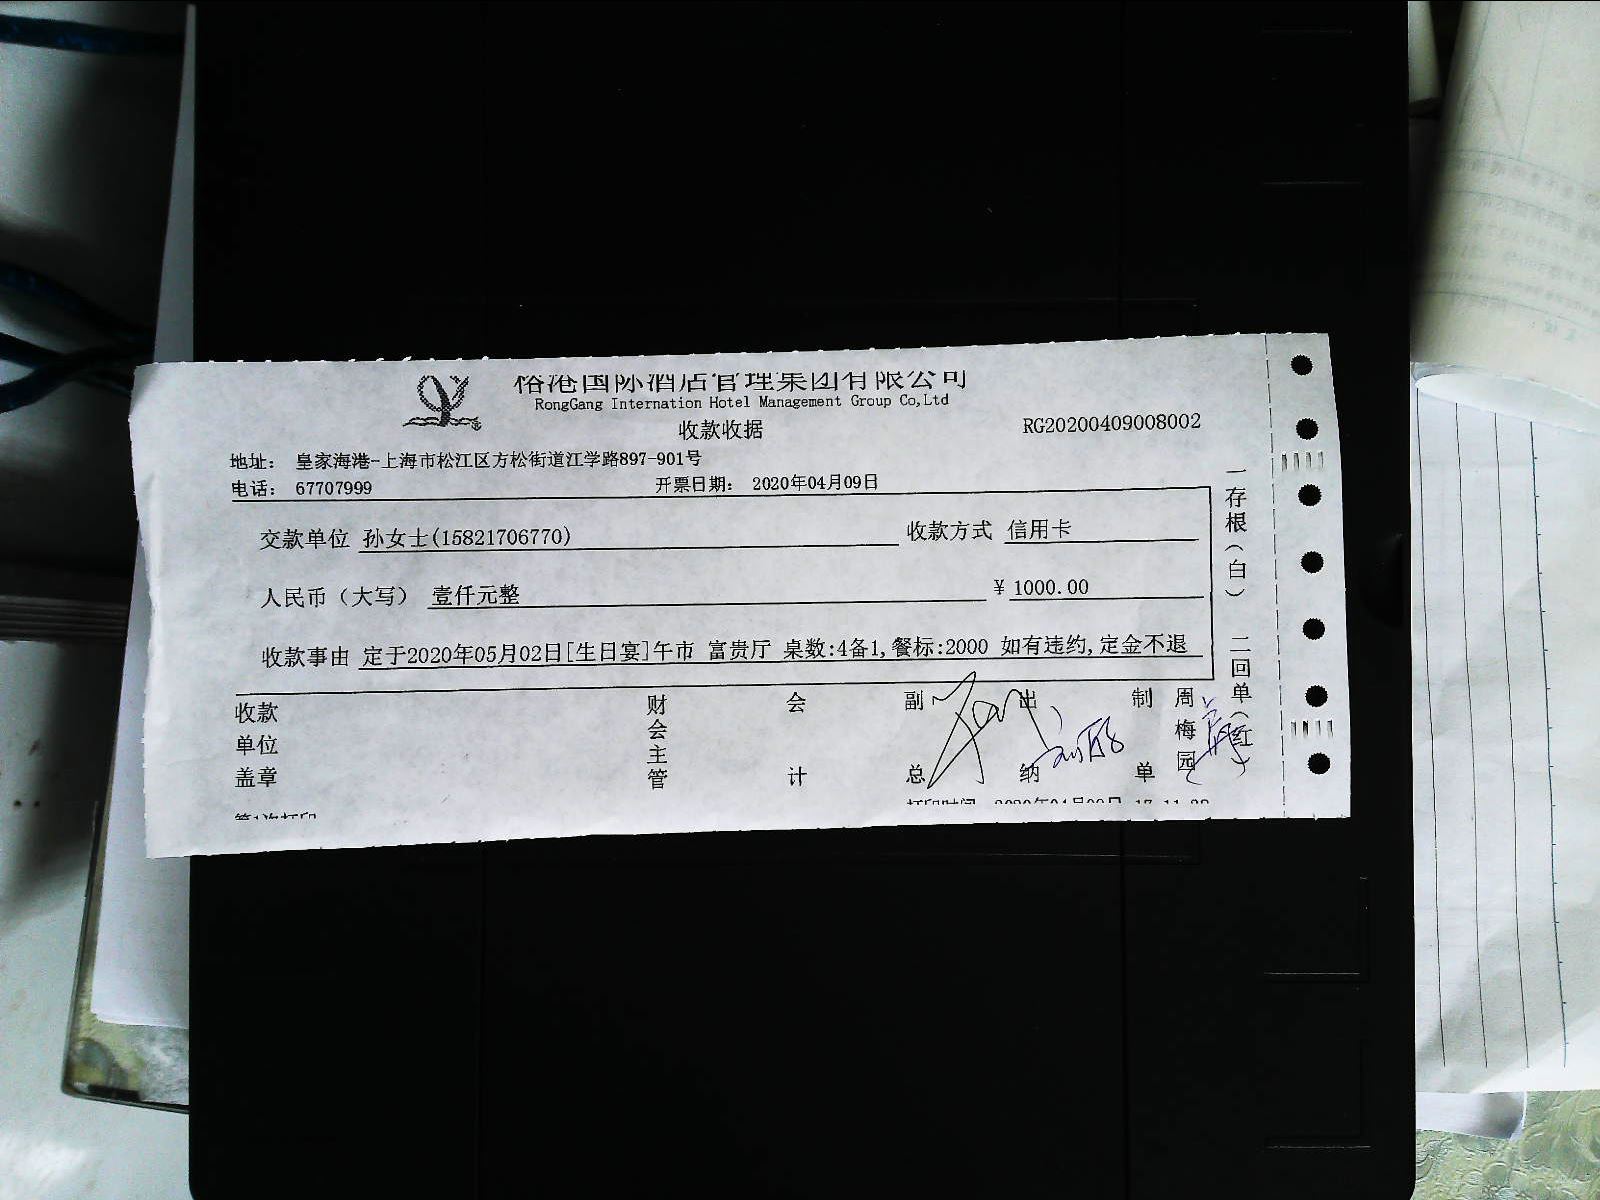 榕港国际酒店管理集团有限公司
RongGang Internation Hotel Management Group Co,Ltd
收款收据
RG20200409008002
地址： 皇家海港-上海市松江区方松街道江学路897-901号
电话： 67707999 开票日期： 2020年04月09日
交款单位 孙女士(15821706770) 收款方式 信用卡
人民币（大写） 壹仟元整 ¥ 1000.00
收款事由 定于2020年05月02日[生日宴]午市 富贵厅 桌数:4备1,餐标:2000 如有违约,定金不退
收款单位盖章 财会主管 会计 副总 出纳 制单 周梅园
一存根（白） 二回单（红）
第1次打印
打印时间